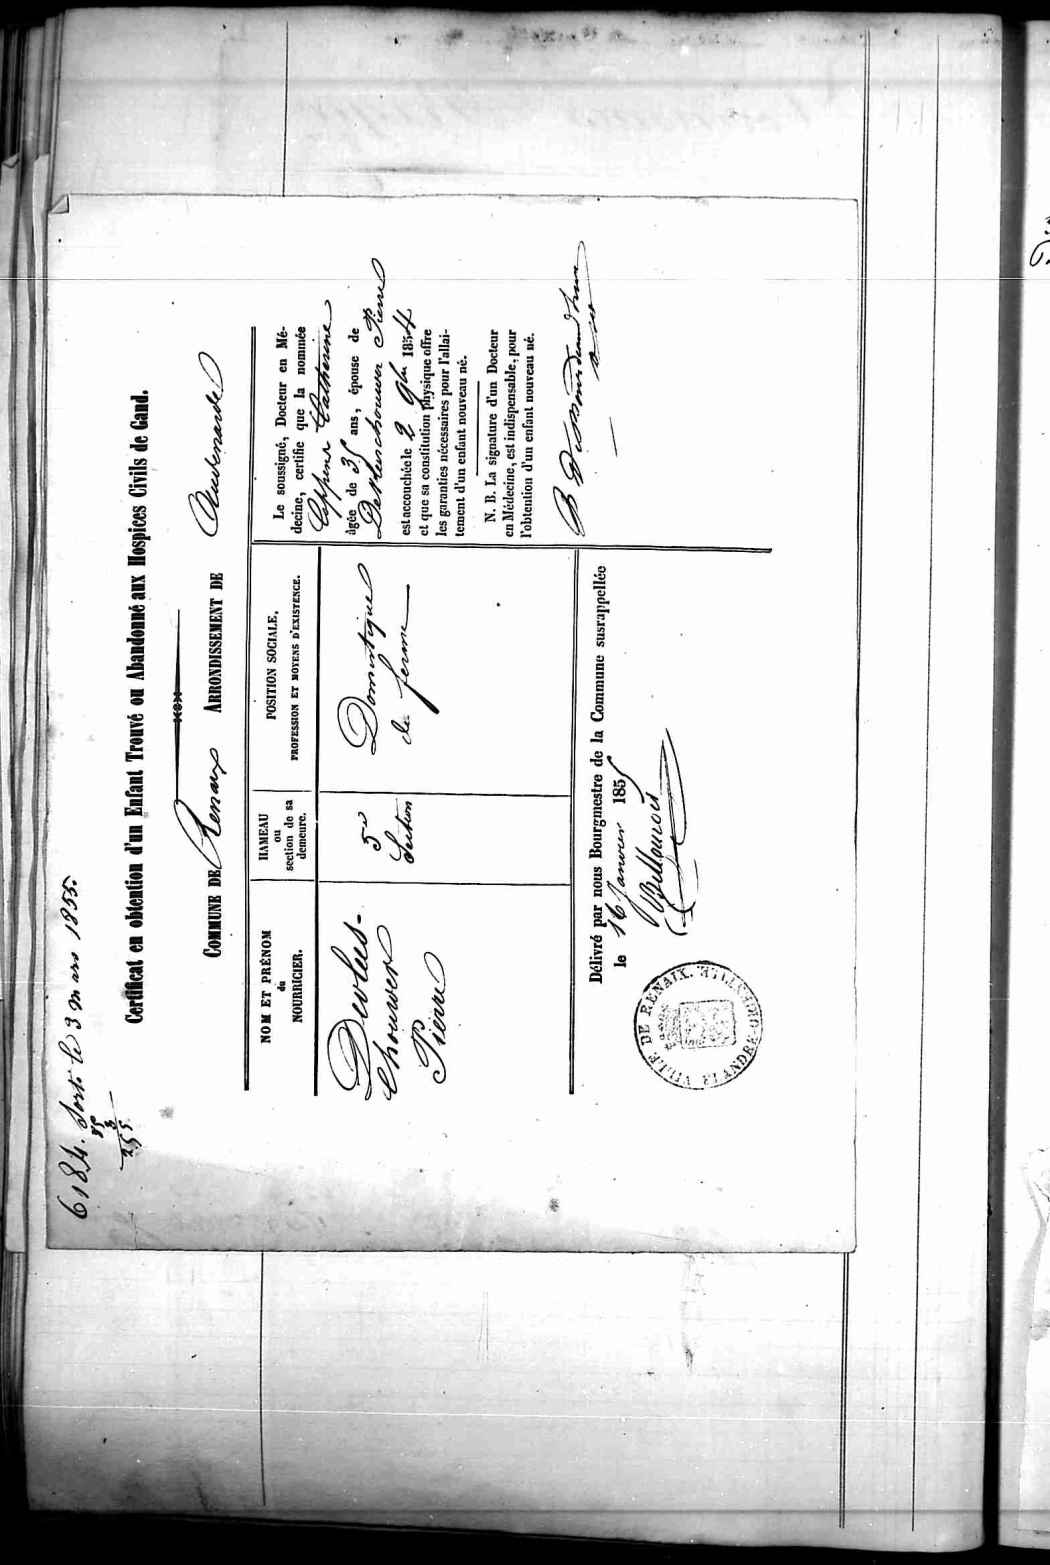 6184. Sorti le 3 mars 1855.
Certificat en obtention d'un Enfant Trouvé ou Abandonné aux Hospices Civils de Gand.
COMMUNE DE Renaix ARRONDISSEMENT DE Audenarde
NOM ET PRÉNOM
du
NOURRICIER.
HAMEAU
ou
section de sa
demeure.
POSITION SOCIALE,
PROFESSION ET MOYENS D'EXISTENCE.
Devleus-
chouwer
Pierre
5e
Section
Domestique
de ferme
Le soussigné, Docteur en Mé-
decine, certifie que la nommée
Eppens Catherine
âgée de 35 ans, épouse de
Devleeschouwer Pierre
est accouchée le 2 9bre 1854
et que sa constitution physique offre
les garanties nécessaires pour l'allai-
tement d'un enfant nouveau né.
N. B. La signature d'un Docteur
en Médecine, est indispensable, pour
l'obtention d'un enfant nouveau né.
Délivré par nous Bourgmestre de la Commune susrappellée
le 16 Janvier 1855
VILLE DE RENAIX.
FLANDRE ORIENTALE